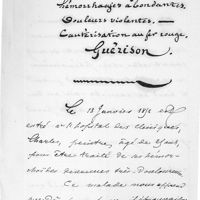 Hémorrhagies abondantes.
Douleurs violentes. —
Cautérisation au fer rouge.
Guérison.
Le 13 Janvier 1871 est
entré à l'hôpital des cliniques,
Charles, peintre, âgé de
pour être traité de ses hémor-
rhoïdes devenues très douloureuses.
Ce malade nous apprend